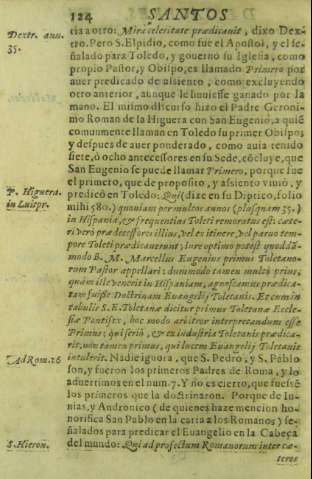 124 SANTOS
Dextr. ann. 35.
tia a otro: Mira celeritate prædicauit, dixo Dex-
tro. Pero S. Elpidio, como fue el Apostol, y el se-
ñalado para Toledo, y gouerno su Iglesia, como
propio Pastor, y Obispo, es llamado Primero por
auer predicado de assiento, como excluyendo
otro anterior, aunque le huuiesse ganado por la
mano. El mismo discurso hizo el Padre Geroni-
mo Roman de la Higuera con San Eugenio, a quié
comunmente llaman en Toledo su primer Obispo;
y despues de auer ponderado, como auia tenido
siete, ò ocho antecessores en su Sede, cócluye, que
San Eugenio se puede llamar Primero, porque fue
el primero, que de proposito, y assiento viuió, y
P. Higuera. in Luitpr.
predicó en Toledo: (dize en su Diptico, folio
mihi 580.) quoniam per multos annos (plusquam 35.)
in Hispania, & frequentius Toleti remoratus est: cæte-
ri verò prædecessores illius, vel ex itinere, vel paruo tem-
pore Toleti prædicauerunt; iure optimo potest quoddã-
modo B. M. Marcellus Eugenius primus Toletano-
rum Pastor appellari: dummodo tamen multò prius,
quàm ille venerit in Hispaniam, agnoscamus prædica-
tam fuisse Doctrinam Euangelij Toletanis. Et cum in
tabulis S. E. Toletanæ dicitur primus Toletanæ Eccle-
siæ Pontifex, hoc modo arbitror interpretandum esse
Primus; qui seriò, & ex industria Toletanis prædica-
rit, non tamen primus, qui lucem Euangelij Toletanis
Ad Rom. 16
intulerit. Nadie ignora, que S. Pedro, y S. Pablo
son, y fueron los primeros Padres de Roma, y lo
aduertimos en el num. 7. Y no es cierto, que fuessé
los primeros que la doctrinaron. Porque de Iu-
nias, y Andronico (de quienes haze mencion ho-
norifica San Pablo en la carta a los Romanos) se-
ñalados para predicar el Euangelio en la Cabeça
S. Hieron.
del mundo: Qui ad profectum Romanorum inter cæ-
teros